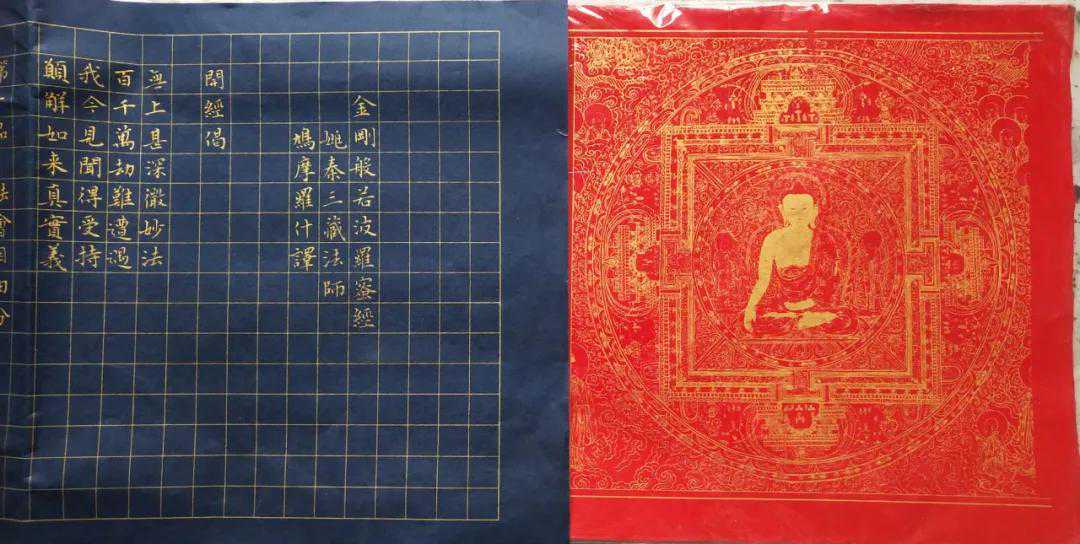 金剛般若波羅蜜經
姚秦三藏法師
鳩摩羅什譯
開經偈
無上甚深微妙法
百千萬劫難遭遇
我今見聞得受持
願解如来真實義